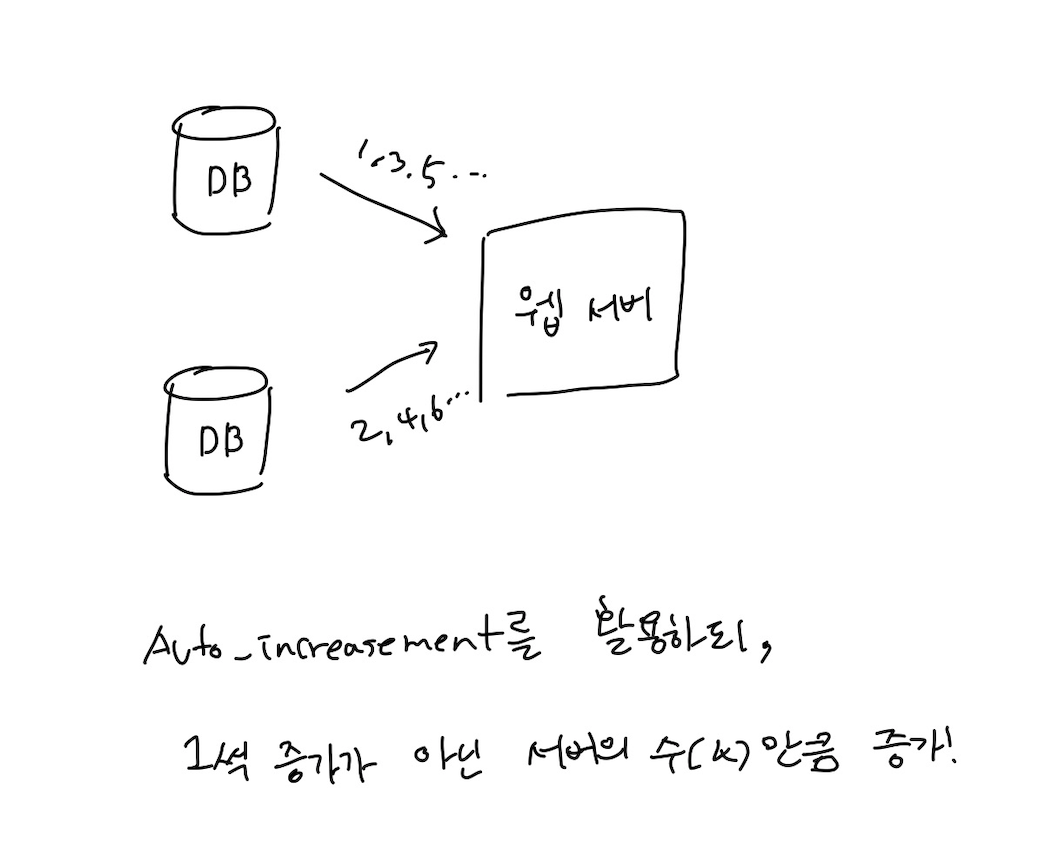 DB
1,3,5...
웹 서버
DB
2,4,6...
Auto_increasement를 활용하되,
1씩 증가가 아닌 서버의 수(k)만큼 증가!